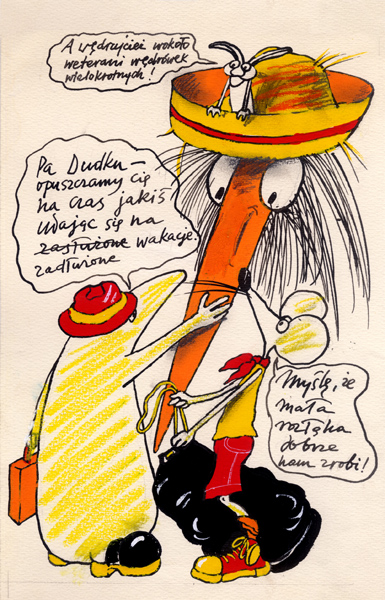 A wędrujciei wokoło
weterani wędrówek
wielokrotnych!
Pa Dudku –
opuszczamy Cię
na czas jakiś
udając się na
zasłużone wakacje.
zadłużone
Myślę, że
mała
rozłąka
dobrze
nam zrobi!